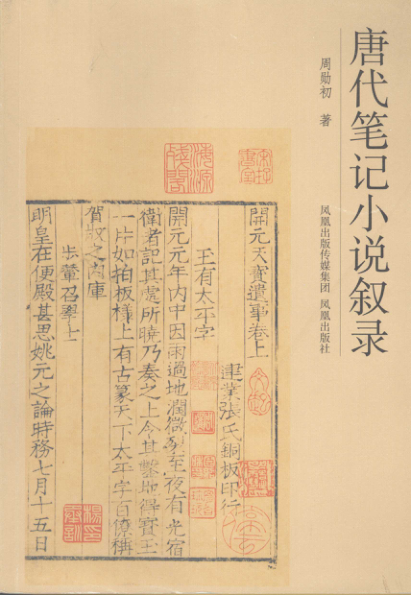 唐代笔记小说叙录
周勋初 著
凤凰出版传媒集团 凤凰出版社
開元天寳遺事卷上
建業張氏銅板印行
王有太平字
開元元年内中因雨過地潤微裂至夜有光宿
衛者記其處所曉乃奏之上令其鑿地得寳玉
一片如拍板樣上有古篆天下太平字百僚稱
賀收之内庫
歩輦召斈士
明皇在便殿甚思姚元之論時務七月十五日